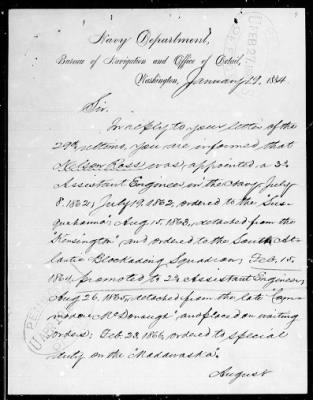 Navy Department,
Bureau of Navigation and Office of Detail,
Washington, January 29, 1884
Sir:
In reply to your letter of the
29th ultimo, you are informed that
Nelson Ross was appointed a 3d
Assistant Engineer in the Navy July
8, 1862; July 19, 1862, ordered to the "Sus-
quehanna"; Aug. 15, 1863, detached from the
"Kensington" and ordered to the South At-
lantic Blockading Squadron; Feb. 15,
1864, promoted to 2d Assistant Engineer;
Aug 26, 1865, detached from the late "Com-
modore McDonough" and placed on waiting
orders; Feb. 23, 1866, ordered to special
duty on the "Madawaska".
August